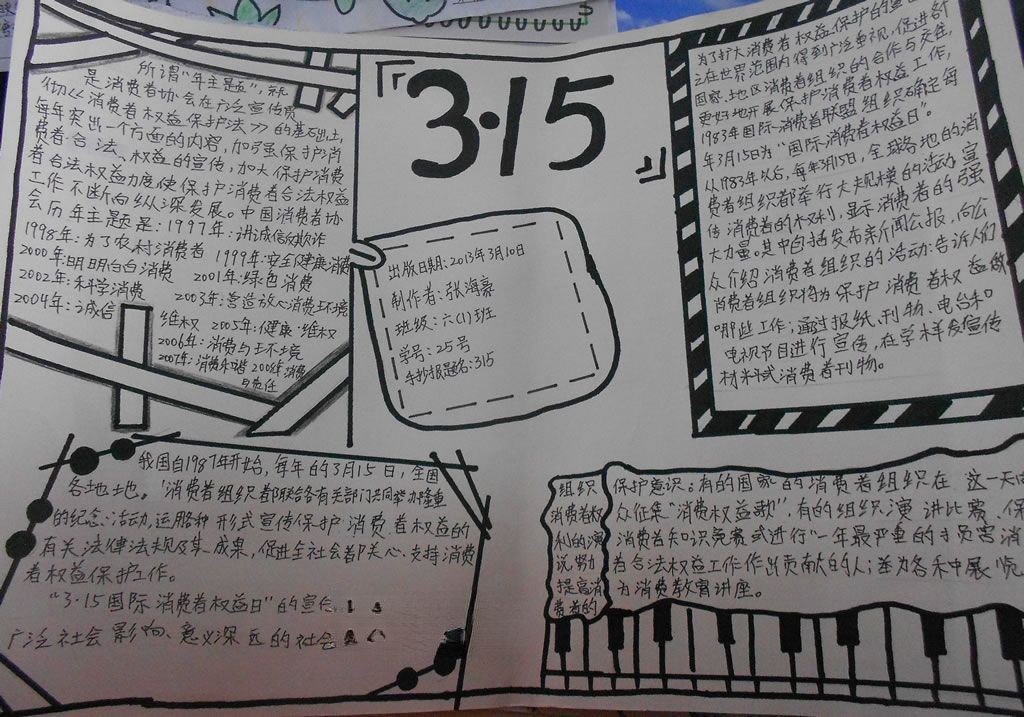 所谓"年主题",就
是消费者协会在广泛宣传贯
彻《消费者权益保护法》的基础上,
每年突出一个方面的内容,加强保护消
费者合法、权益的宣传,加大保护消费
者合法权益力度使保护消费者合法权益
工作不断向纵深发展。中国消费者协
会历年主题是:1997年:讲诚信反欺诈
1998年:为了农村消费者 1999年:安全健康消费
2000年:明明白白消费 2001年:绿色消费
2002年:科学消费 2003年:营造放心消费环境
2004年:诚信
维权 2005年:健康·维权
2006年:消费与环境
2007年:消费和谐 2008年:消费
与责任
『3·15』
出版日期:2013年3月10日
制作者:张海豪
班级:六(1)班
学号:25号
手抄报题名:315
为了扩大消费者权益保护的宣
之在世界范围内得到广泛重视,促进各
国家、地区消费者组织的合作与交往,
更好地开展保护消费者权益工作,
1983年国际消费者联盟组织确定每
年3月15日为"国际消费者权益日"。
从1983年以后,每年3月15日,全球各地的消
费者组织都举行大规模的活动宣
传消费者的权利,显示消费者的强
大力量。其中包括发布新闻公报,向公
众介绍消费者组织的活动:告诉人们
消费者组织将为保护消费者权益做
哪些工作;通过报纸、刊物、电台和
电视节目进行宣传,在学样发宣传
材料或消费者刊物。
我国自1987年开始,每年的3月15日,全国
各地地。消费者组织都联合各有关部门共同举办隆重
的纪念活动,运用各种形式宣传保护消费者权益的
有关法律法规及其成果,促进全社会都关心、支持消费
者权益保护工作。
"3·15国际消费者权益日"的宣传
广泛社会影响、意义深远的社会
组织
消费者权
利的演
说努力
提高消
费者的
保护意识;有的国家的消费者组织在这一天向
众征集"消费权益歌",有的组织演讲比赛、保
消费者知识竞赛或进行"一年最严重的损害消
者合法权益工作作出贡献的人;举办各种展览
为消费教育讲座。